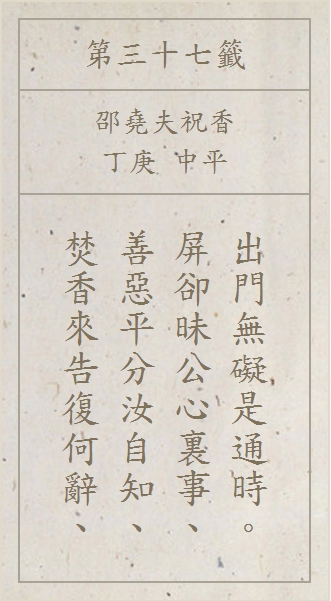 第三十七籤
邵堯夫祝香
丁庚 中平
焚香來告復何辭、
善惡平分汝自知、
屏卻昧公心裏事、
出門無礙是通時。